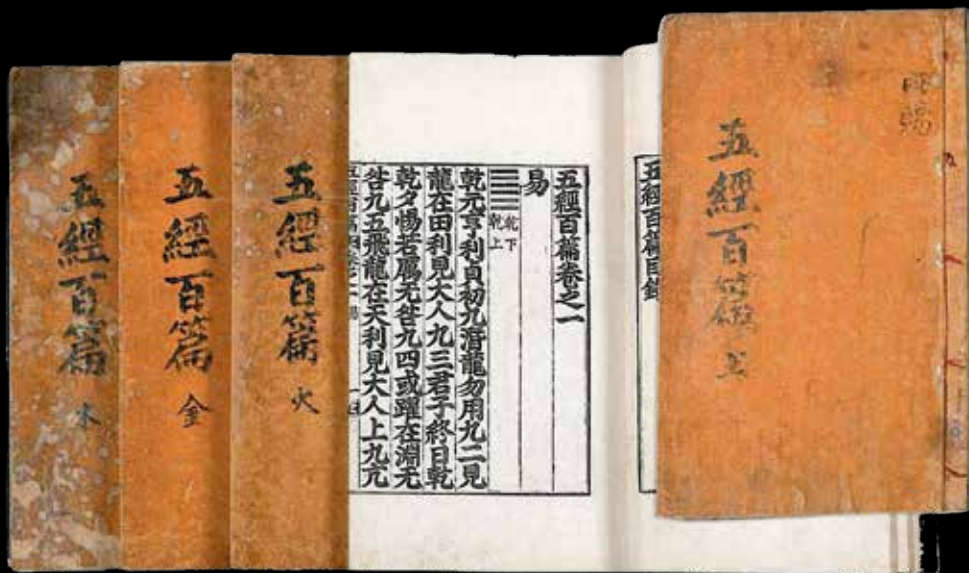 內賜
五經百篇 土
五經百篇目錄
五經百篇卷之一
易
乾下
乾上
乾元亨利貞初九潛龍勿用九二見
龍在田利見大人九三君子終日乾
乾夕惕若厲无咎九四或躍在淵无
咎九五飛龍在天利見大人上九亢
五經百篇 火
五經百篇 金
五經百篇 木